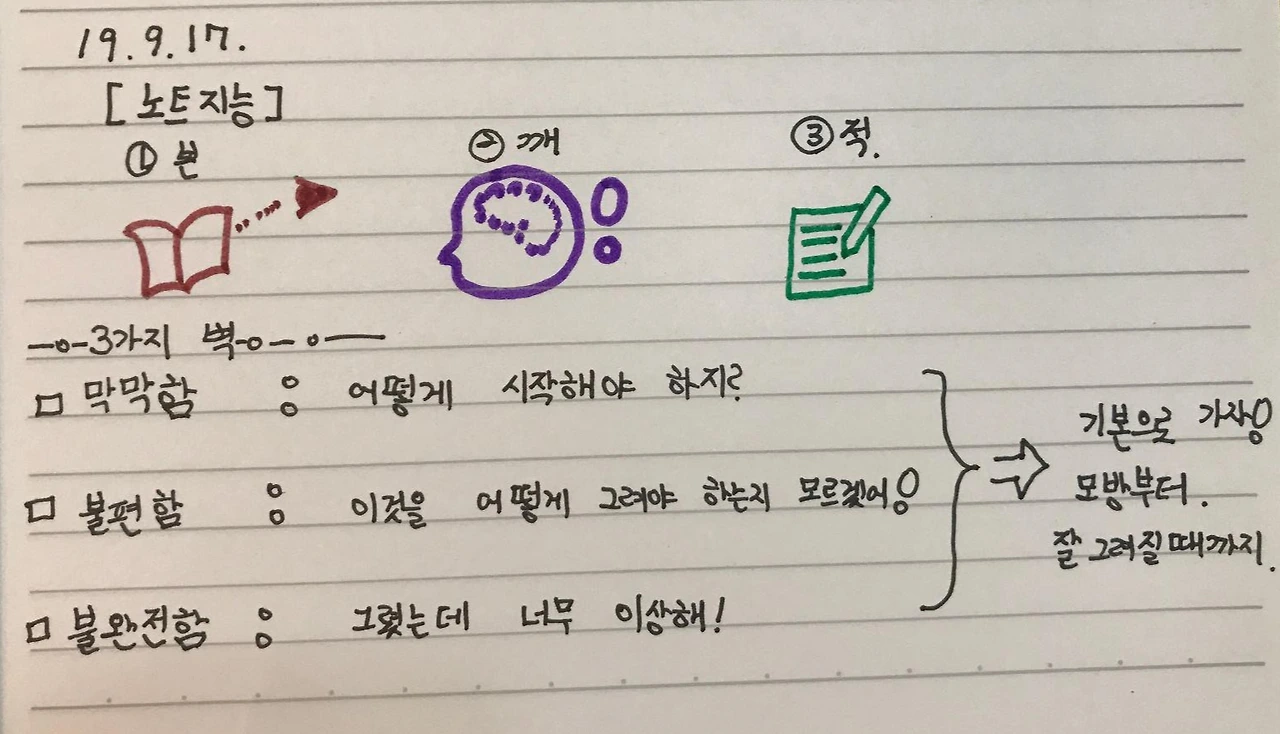 19.9.17.
[노트지능]
① 본 ② 깨 ③ 적.
3가지 벽
막막함 : 어떻게 시작해야 하지?
불편함 : 이것을 어떻게 그려야 하는지 모르겠어!
불완전함 : 그렸는데 너무 이상해!
기본으로 가자!
모방부터.
잘 그려질때까지.